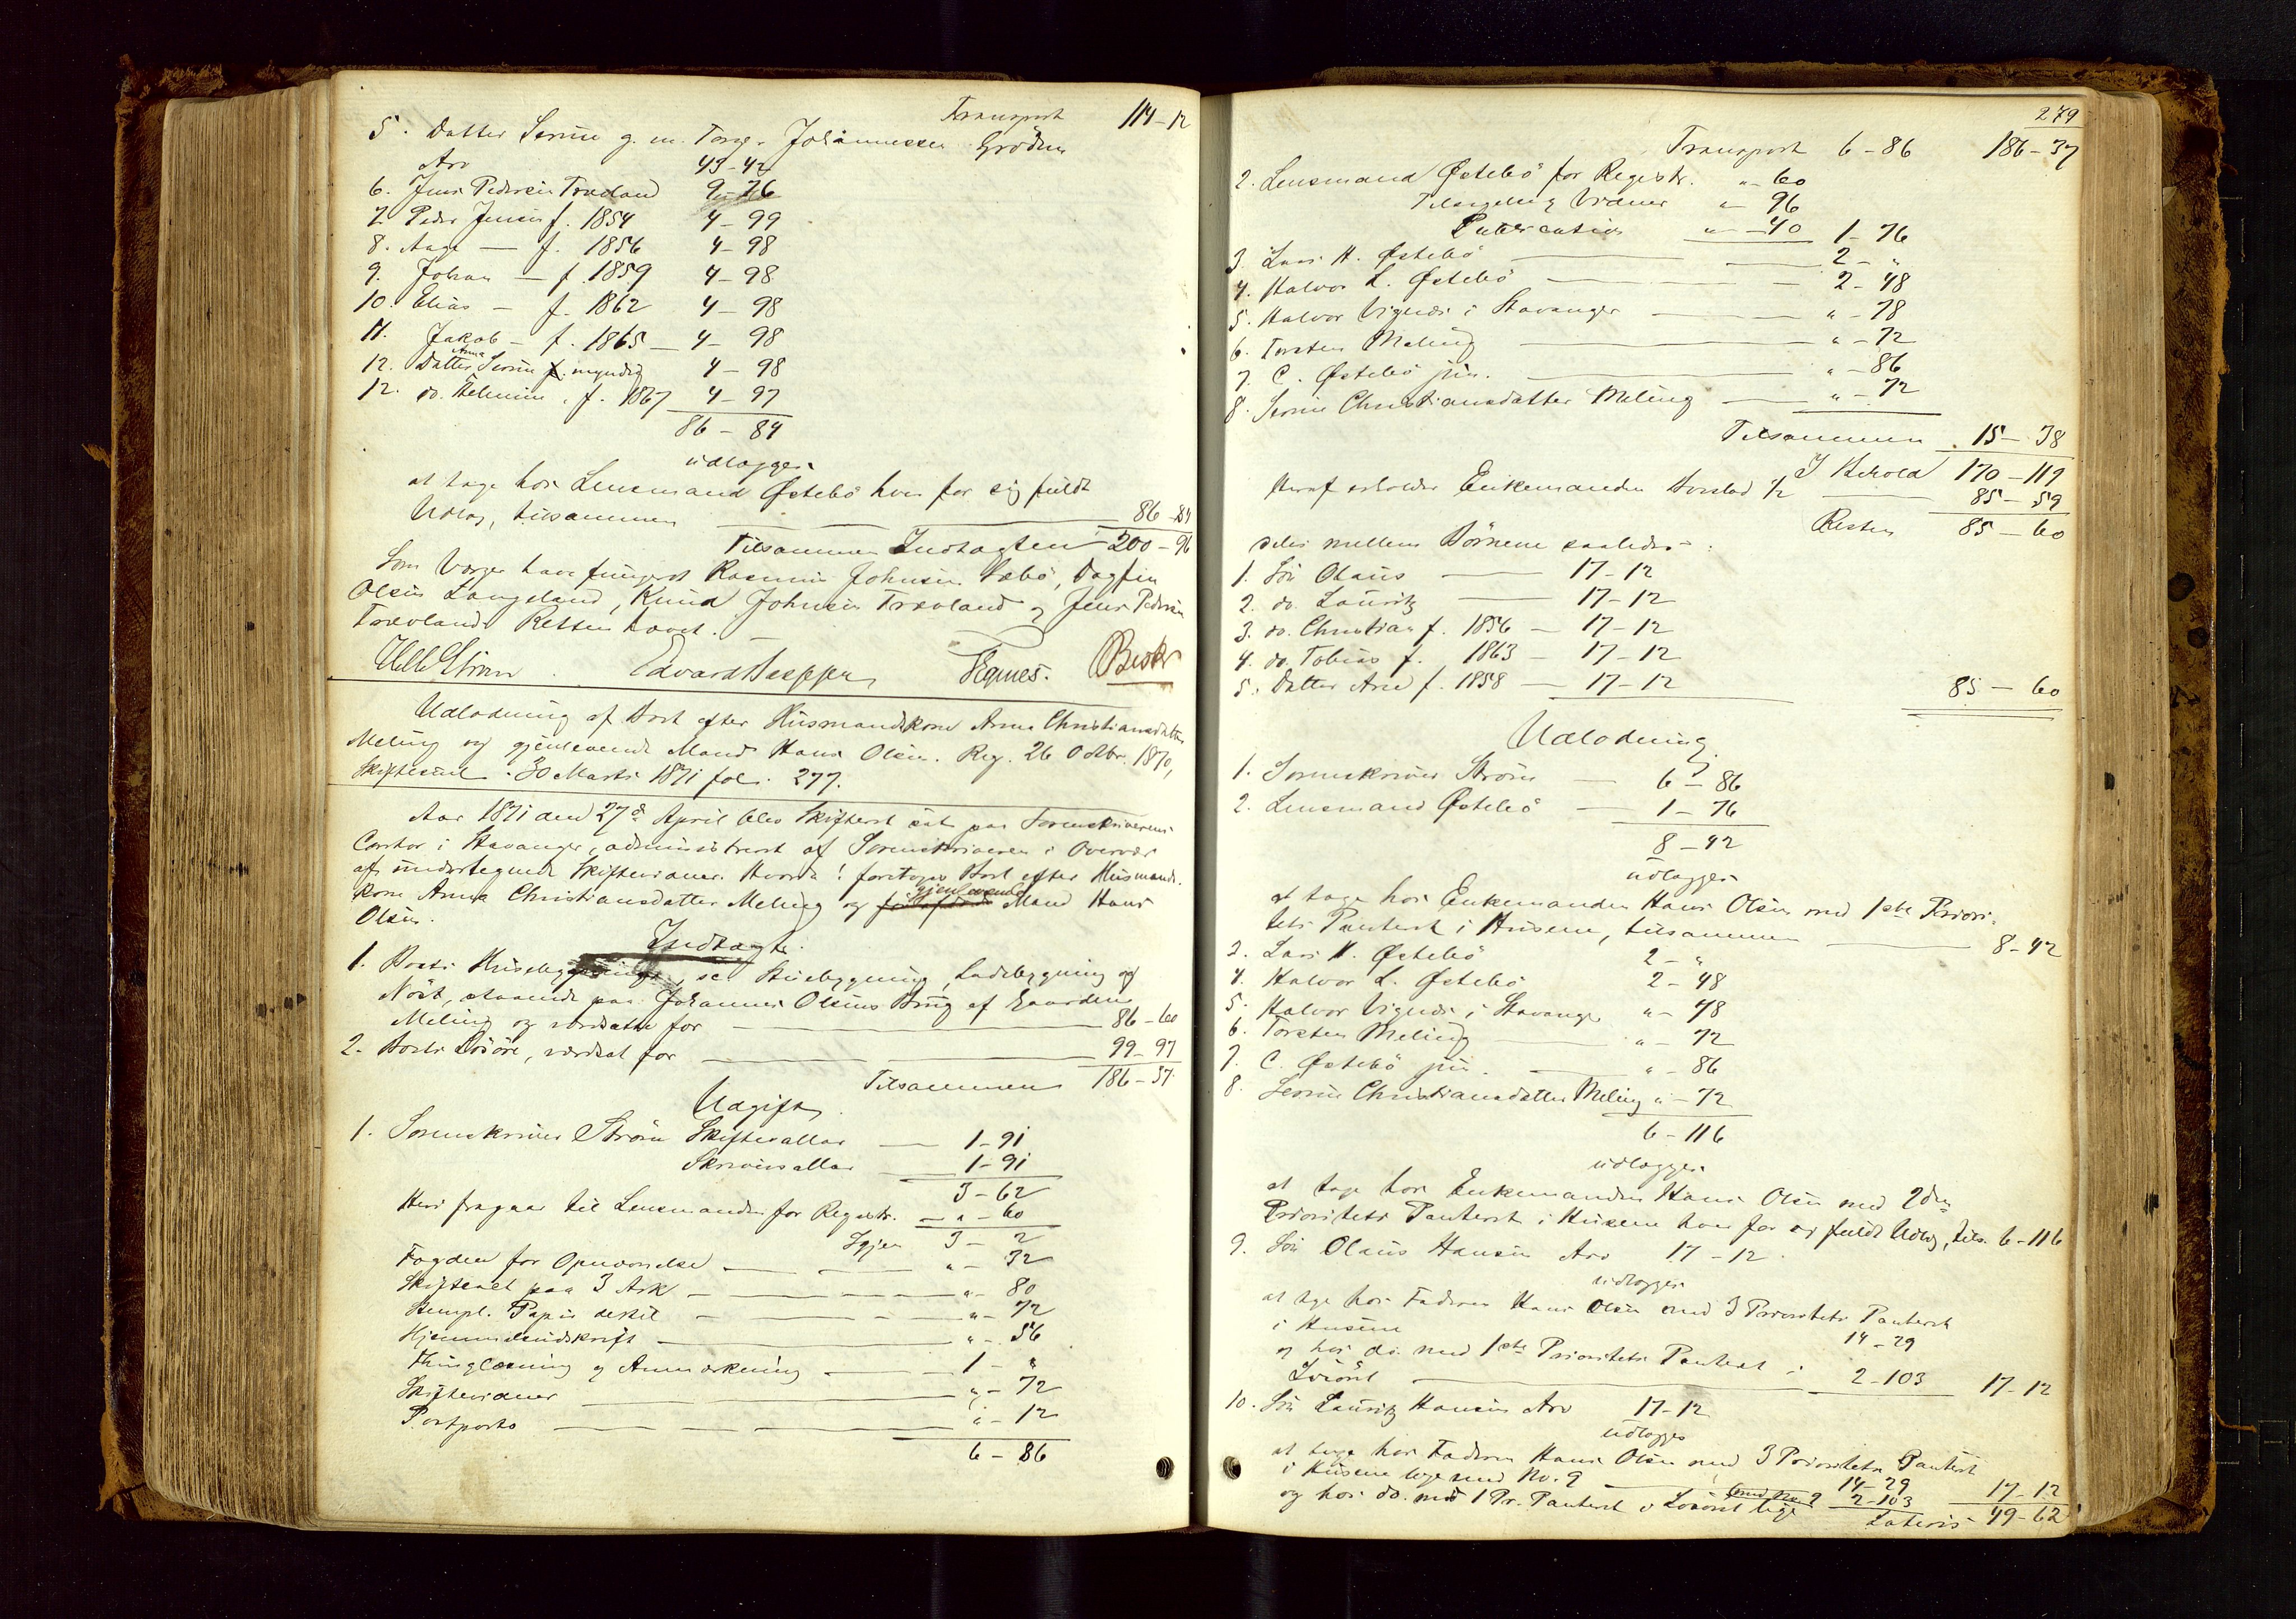 Transport 114-12
5. Datter Serine g. m. Torg. Johannessen Gröden
Arv 43-42
6. Jens Pedersen Træland 9-76
7. Peder Jensen f. 1854 4-99
8. Aage — f. 1856 4-98
9. Johan — f. 1859 4-98
10. Elias — f. 1862 4-98
11. Jakob — f. 1865 — 4-98
12. Datter Anna Serine f. myndig 4-98
12. do. Helmine, f. 1867 4-97
86-84
udlægges
at tage hos Lensmand Østebö hver for sig fuldt
Udlæg, tilsammen 86-84
Tilsammen Indtægten 200-96
Som Værger have fungeret Rasmus Johnsen Læbö, Dagfin
Olsen Langeland, Knud Johnsen Træland og Jens Pedersen
Træland. Retten hævet.
Edvard Seppen Egnes. Beskr
Udlodning af Boet efter Husmandskone Anna Christiansdatter
Meling og gjenlevende Mand Hans Olsen. Reg. 26 Octbr. 1870,
Skiftesml. 30 Marts 1871 fol. 277.
Aar 1871 den 27de April blev Skifteret sat paa Sorenskriverens
Contor i Stavanger, administreret af Sorenskriveren i Overvær
af undertegnede Skiftevidner. Hvorda: foretoges Boet efter Husmands-
kone Anna Christiansdatter Meling og gjenlevende Mand Hans
Olsen.
Indtægt.
1. Boets Husebygninger, sc Stuebygning, Ladebygning og
Nöst, staaende paa Johannes Olsens Brug af Gaarden
Meling og værdsatte for 86-60
2. Boets Lösöre, værdsat for 99-97
Tilsammen 186-37
Udgift
1. Sorenskriver Ström Skiftesallar — 1-91
Skriversallar — 1-91
3-62
Heri fragaar til Lensmanden for Registr. — " - 60
Igjen 3-2
Fogden for Opnævnelse — " - 32
Skiftesml paa 3 Ark — " - 80
Stempl. Papir dertil — " - 72
Hjemmelsudskrift — " - 56
Thinglæsning og Anmærkning — 1 - "
Skiftevidner — " - 72
Postporto — " - 12
6-86
279
Transport 6-86 186-37
2. Lensmand Østebö for Registr. " - 60
Tilsigelse og Vidner " - 96
Publication " - 40 1-76
3. Lars H. Østebö — 2 - "
4. Halvor L. Østebö — 2-48
5. Halvor Vignes i Stavanger — " - 78
6. Torsten Meling — " - 72
7. C. Østebö jun. — " - 86
8. Serine Christiansdatter Meling — " - 72
Tilsammen 15-38
I Behold 170-119
Heraf erholder Enkemanden Hovedlod 1/2 — 85-59
Resten 85-60
deles mellem Börnene saaledes:
1. Sön Olaus — 17-12
2. do. Lauritz — 17-12
3. do. Christian f. 1856 — 17-12
4. do. Tobias f. 1863 — 17-12
5. Datter Ane f. 1858 — 17-12 85-60
Udlodning
1. Sorenskriver Ström — 6-86
2. Lensmand Østebö — 1-76
8-42
udlægges
at tage hos Enkemanden Hans Olsen med 1ste Priori-
tets Panteret i Husene, tilsammen — 8-42
3. Lars H. Østebö 2 - "
4. Halvor L. Østebö 2-48
5. Halvor Vignes i Stavanger " - 48
6. Torsten Meling — " - 72
7. C. Østebö jun. — " - 86
8. Serine Christiansdatter Meling " - 72
6-116
udlægges
at tage hos Enkemanden Hans Olsen med 2den
Prioritets Panteret i Husene hver for sig fuldt Udlæg, tils. 6-116
9. Sön Olaus Hansen Arv 17-12.
udlægges
at tage hos Faderen Hans Olsen med 3 Prioritets Panteret
i Husene 14-29
og hos do. med 1ste Prioritets Panteret i
Lösöret — 2-103 17-12
10. Sön Lauritz Hansen Arv 17-12
udlægges
at tage hos Faderen Hans Olsen med 3 Prioritets Panteret
i Husene lige med No. 9 — 14-29
og hos do. med 1 Pr. Panteret i Lösöret lige med No. 9 2-103 17-12
Lateris 49-62